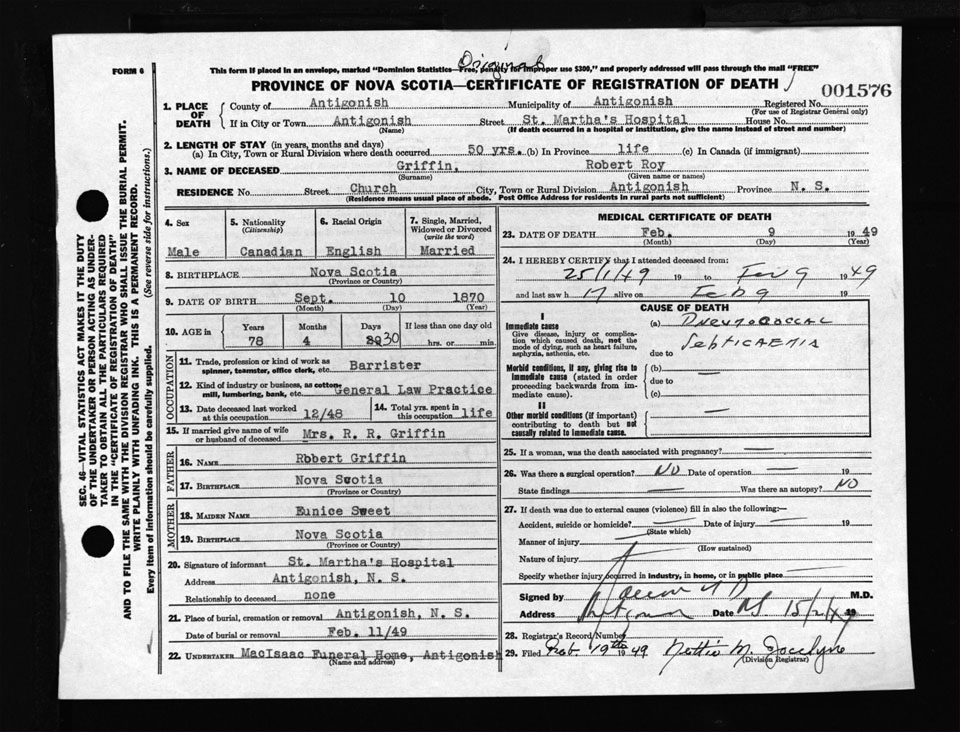 Original
FORM 6 This form if placed in an envelope, marked "Dominion Statistics—Free, penalty for improper use $300," and properly addressed will pass through the mail "FREE"
PROVINCE OF NOVA SCOTIA—CERTIFICATE OF REGISTRATION OF DEATH
001576
1. PLACE OF DEATH County of Antigonish Municipality of Antigonish Registered No.
(For use of Registrar General only)
If in City or Town Antigonish Street St. Martha's Hospital House No.
(Name) (If death occurred in a hospital or institution, give the name instead of street and number)
2. LENGTH OF STAY (in years, months and days)
(a) In City, Town or Rural Division where death occurred 50 yrs. (b) In Province life (c) In Canada (if immigrant)
3. NAME OF DECEASED Griffin, Robert Roy
(Surname) (Given name or names)
RESIDENCE No. Street Church City, Town or Rural Division Antigonish Province N. S.
(Residence means usual place of abode. Post Office Address for residents in rural parts not sufficient)
4. Sex 5. Nationality 6. Racial Origin 7. Single, Married,
(Citizenship) Widowed or Divorced
(write the word)
Male Canadian English Married
8. BIRTHPLACE Nova Scotia
(Province or Country)
9. DATE OF BIRTH Sept. 10 1870
(Month) (Day) (Year)
10. AGE in Years Months Days If less than one day old
78 4 30 hrs. or min.
OCCUPATION
11. Trade, profession or kind of work as
spinner, teamster, office clerk, etc. Barrister
12. Kind of industry or business, as cotton
mill, lumbering, bank, etc. General Law Practice
13. Date deceased last worked
at this occupation 12/48
14. Total yrs. spent in
this occupation life
15. If married give name of wife
or husband of deceased Mrs. R. R. Griffin
FATHER
16. NAME Robert Griffin
17. BIRTHPLACE Nova Scotia
(Province or Country)
MOTHER
18. MAIDEN NAME Eunice Sweet
19. BIRTHPLACE Nova Scotia
(Province or Country)
20. Signature of informant St. Martha's Hospital
Address Antigonish, N. S.
Relationship to deceased none
21. Place of burial, cremation or removal Antigonish, N. S.
Date of burial or removal Feb. 11/49
22. UNDERTAKER MacIsaac Funeral Home, Antigonish
(Name and address)
MEDICAL CERTIFICATE OF DEATH
23. DATE OF DEATH Feb. 9 1949
(Month) (Day) (Year)
24. I HEREBY CERTIFY that I attended deceased from:
25/1/49 19 to Feb 9 1949
and last saw h alive on Feb 9 19
CAUSE OF DEATH
I
Immediate cause (a) Pneumococcal
Give disease, injury or complication which caused death, not the mode of dying, such as heart failure, asphyxia, asthenia, etc. Septicaemia
due to
Morbid conditions, if any, giving rise to immediate cause (stated in order proceeding backwards from immediate cause). (b) —
due to
(c)
II
Other morbid conditions (if important) contributing to death but not causally related to immediate cause. —
25. If a woman, was the death associated with pregnancy? —
26. Was there a surgical operation? NO Date of operation — 19
State findings — Was there an autopsy? NO
27. If death was due to external causes (violence) fill in also the following:—
Accident, suicide or homicide? — Date of injury — 19
(State which)
Manner of injury —
(How sustained)
Nature of injury
Specify whether injury occurred in industry, in home, or in public place —
Signed by M.D.
Address Antigonish Date 15/2/49
28. Registrar's Record Number
29. Filed Feb. 19th 1949 Nettie M. Jocelyne
(Division Registrar)
SEC. 46—VITAL STATISTICS ACT MAKES IT THE DUTY
OF THE UNDERTAKER OR PERSON ACTING AS UNDERTAKER TO OBTAIN ALL THE PARTICULARS REQUIRED
IN THE "CERTIFICATE OF REGISTRATION OF DEATH"
AND TO FILE THE SAME WITH THE DIVISION REGISTRAR WHO SHALL ISSUE THE BURIAL PERMIT.
WRITE PLAINLY WITH UNFADING INK. THIS IS A PERMANENT RECORD.
Every item of information should be carefully supplied. (See reverse side for instructions.)